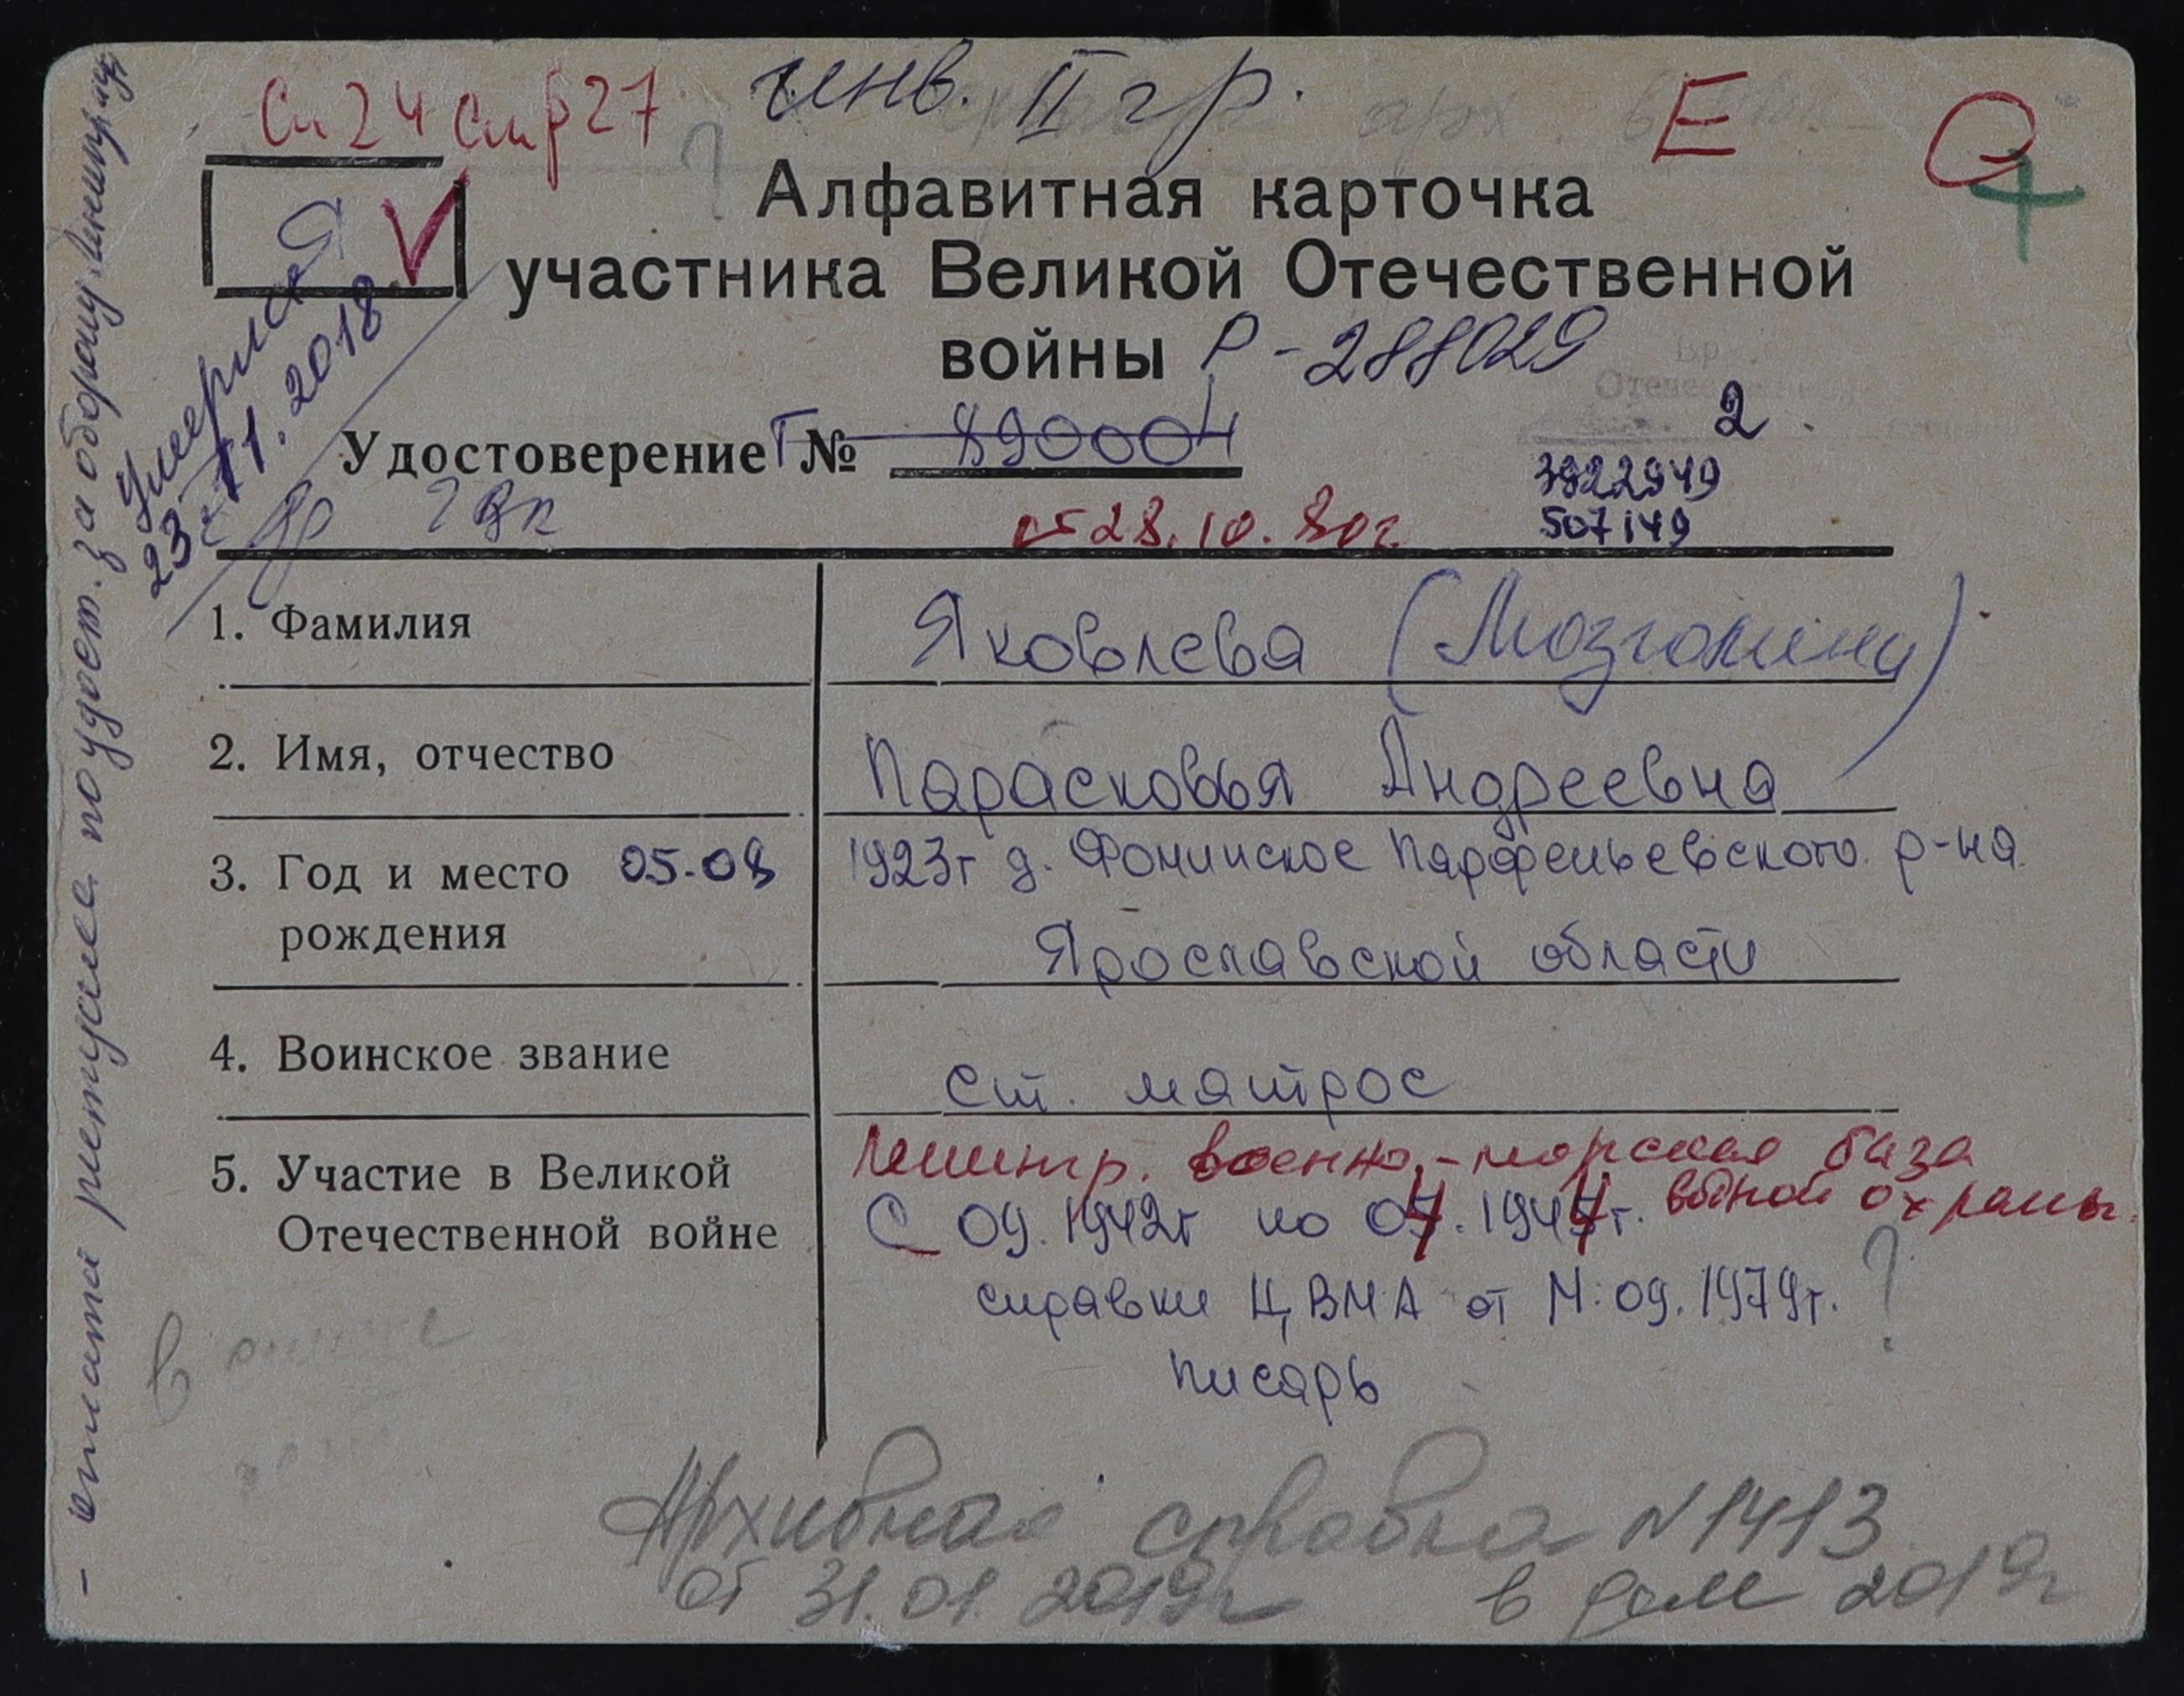 Сп 24 стр 27
инв. II гр.
Е
Я
Алфавитная карточка
участника Великой Отечественной
войны Р-288029
Удостоверение Г № 890004
2
3922949
507149
от 28.10.80г.
умерла
23.11.2018
1. Фамилия
Яковлева
2. Имя, отчество
Парасковья Андреевна
3. Год и место 05.08
рождения
1923г д. Фоминское Парфеньевского р-на
Ярославской области
4. Воинское звание
ст. матрос
5. Участие в Великой
Отечественной войне
Ленингр. военно-морская база
С 09.1942г по 07.1944г. водной охраны.
справки ЦВМА от 14.09.1979г. ?
писарь
Архивная справка N1413
от 31.01.2019г в деле 2019г
за оборону Ленинграда